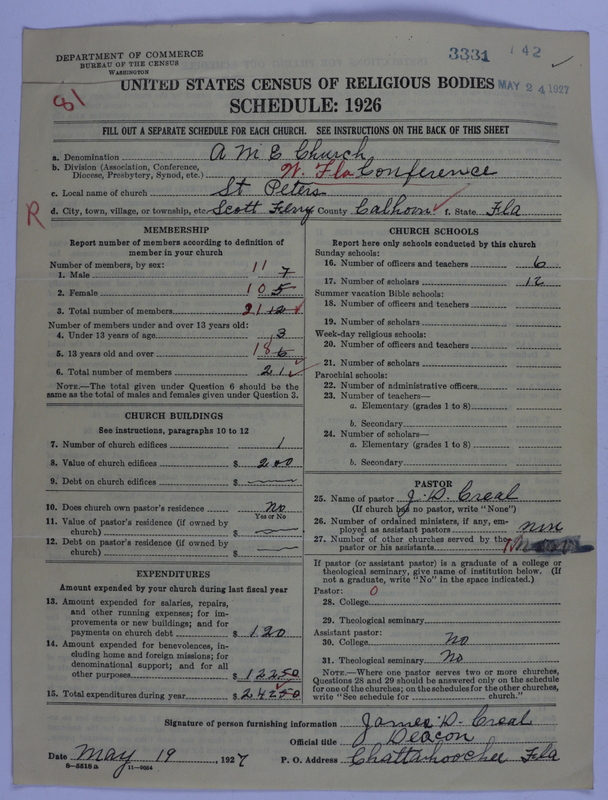 DEPARTMENT OF COMMERCE
BUREAU OF THE CENSUS
WASHINGTON
3331 142
MAY 24 1927
81
UNITED STATES CENSUS OF RELIGIOUS BODIES
SCHEDULE: 1926
FILL OUT A SEPARATE SCHEDULE FOR EACH CHURCH. SEE INSTRUCTIONS ON THE BACK OF THIS SHEET
a. Denomination A M E Church
b. Division (Association, Conference, Diocese, Presbytery, Synod, etc.) W. Fla Conference
c. Local name of church St Peters
R
d. City, town, village, or township, etc. Scott Ferry County Calhoun f. State Fla
MEMBERSHIP
Report number of members according to definition of
member in your church
Number of members, by sex:
1. Male 11 7
2. Female 10 5
3. Total number of members 21 12
Number of members under and over 13 years old:
4. Under 13 years of age 3
5. 13 years old and over 18 6
6. Total number of members 21
NOTE.—The total given under Question 6 should be the
same as the total of males and females given under Question 3.
CHURCH BUILDINGS
See instructions, paragraphs 10 to 12
7. Number of church edifices 1
8. Value of church edifices $ 200
9. Debt on church edifices $
10. Does church own pastor's residence No
Yes or No
11. Value of pastor's residence (if owned by
church) $
12. Debt on pastor's residence (if owned by
church) $
EXPENDITURES
Amount expended by your church during last fiscal year
13. Amount expended for salaries, repairs,
and other running expenses; for im-
provements or new buildings; and for
payments on church debt $ 120
14. Amount expended for benevolences, in-
cluding home and foreign missions; for
denominational support; and for all
other purposes $ 122 50
15. Total expenditures during year $ 242 50
CHURCH SCHOOLS
Report here only schools conducted by this church
Sunday schools:
16. Number of officers and teachers 6
17. Number of scholars 12
Summer vacation Bible schools:
18. Number of officers and teachers
19. Number of scholars
Week-day religious schools:
20. Number of officers and teachers
21. Number of scholars
Parochial schools:
22. Number of administrative officers
23. Number of teachers—
a. Elementary (grades 1 to 8)
b. Secondary
24. Number of scholars—
a. Elementary (grades 1 to 8)
b. Secondary
PASTOR
25. Name of pastor J. D. Creal
(If church has no pastor, write "None")
26. Number of ordained ministers, if any, em-
ployed as assistant pastors
27. Number of other churches served by the
pastor or his assistants
If pastor (or assistant pastor) is a graduate of a college or
theological seminary, give name of institution below. (If
not a graduate, write "No" in the space indicated.)
Pastor: 0
28. College
29. Theological seminary
Assistant pastor:
30. College No
31. Theological seminary No
NOTE.—Where one pastor serves two or more churches,
Questions 28 and 29 should be answered only on the schedule
for one of the churches; on the schedules for the other churches,
write "See schedule for church."
Signature of person furnishing information James D. Creal
Official title Deacon
Date May 19, 1927 P. O. Address Chattahoochee Fla
8-5518 a 11-9664